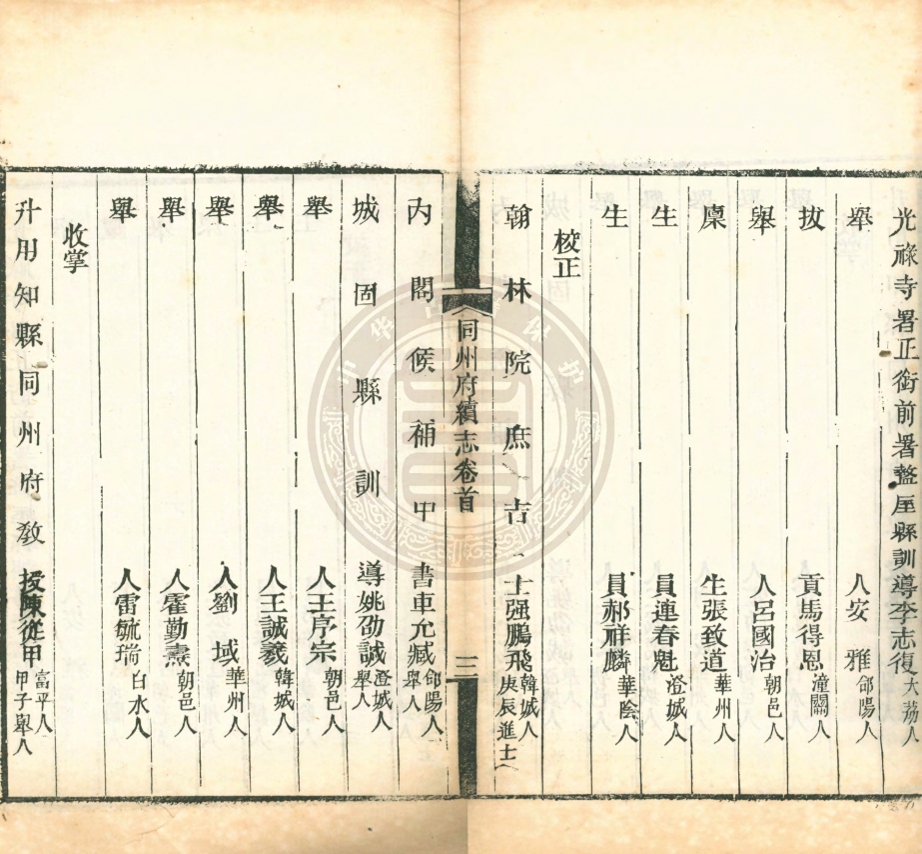 光祿寺署正銜前署盩厔縣訓導李志復大荔人
舉人安雅郃陽人
拔貢馬得恩潼關人
舉人呂國治朝邑人
廩生張致道華州人
生員連春魁澄城人
生員郝祥麟華陰人
校正
翰林院庶吉士强鵬飛韓城人庚辰進士
同州府續志卷首
三
內閣候補中書車允臧郃陽人舉人
城固縣訓導姚劭誠澄城人舉人
舉人王序宗朝邑人
舉人王誠羲韓城人
舉人劉域華州人
舉人霍勤燾朝邑人
舉人雷毓瑞白水人
收掌
升用知縣同州府教授陳從甲富平人甲子舉人